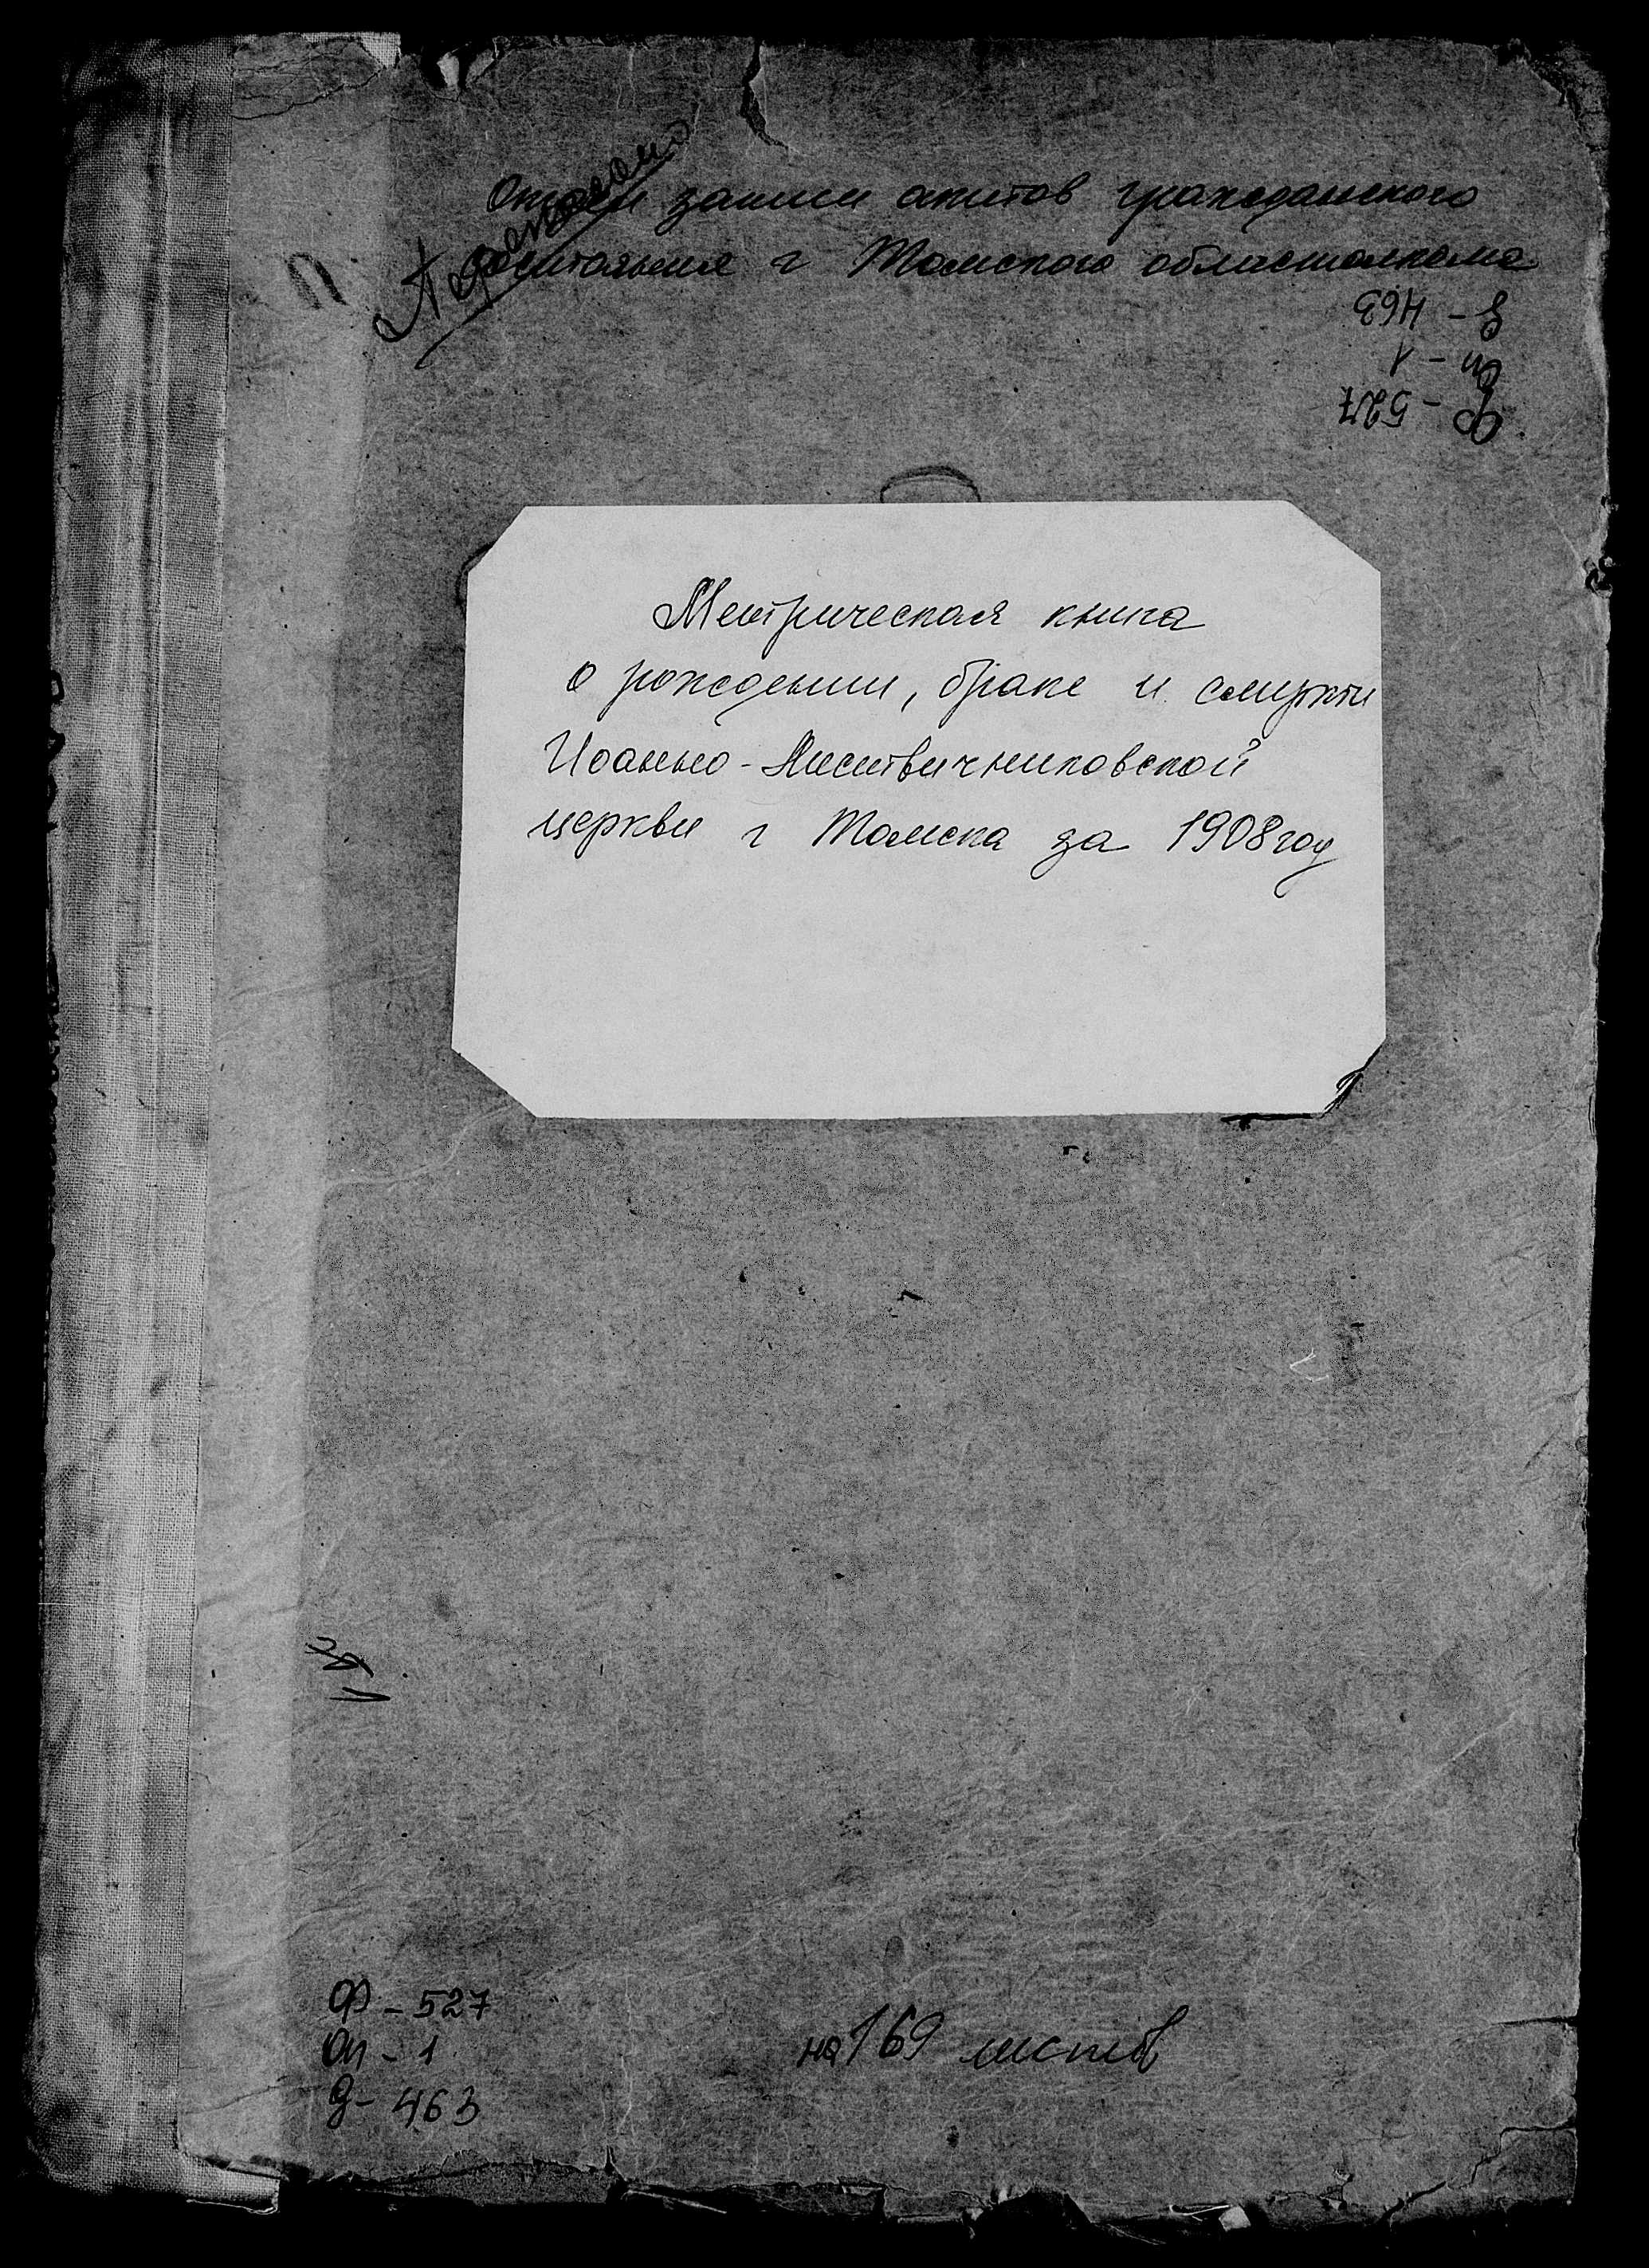 Отдел записи актов гражданского
состояния г Томского облисполкома
Ф - 527
Оп - 1
Д - 463
Метрическая книга
о рождении, браке и смерти
Иоанно - Лествичниковской
церкви г Томска за 1908 год
Ф - 527
Оп - 1
Д - 463
на 169 листов